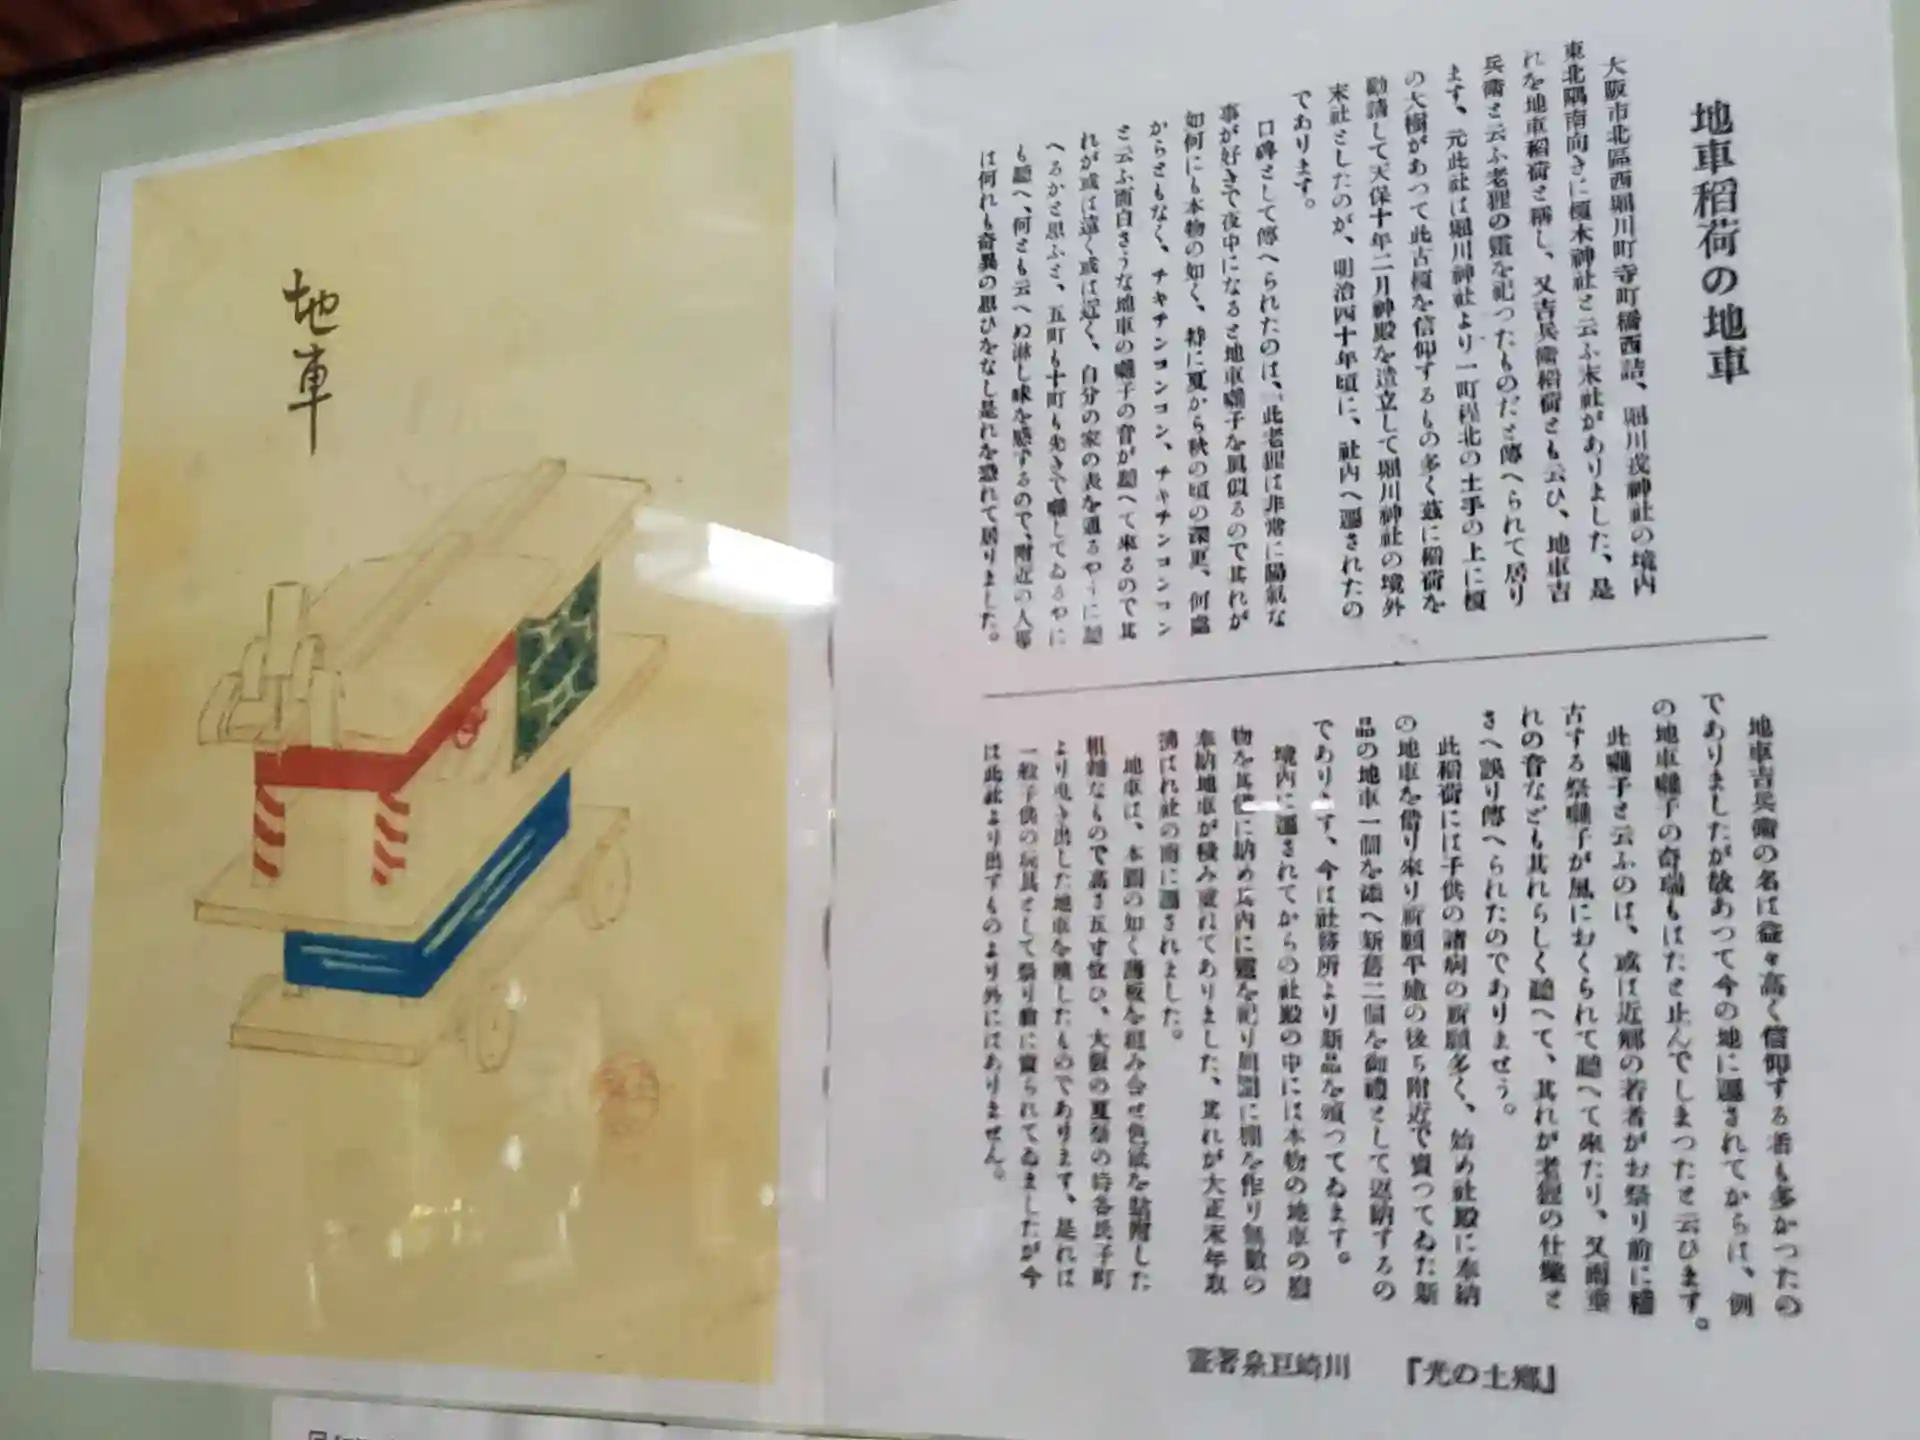 地車稲荷の地車
大阪市北區西堀川町寺町橋西詰、堀川戎神社の境内
東北隅南向きに榎木神社と云ふ末社がありました、是
れを地車稲荷と稱し、又吉兵衛稲荷とも云ひ、地車吉
兵衛と云ふ老狸の靈を祀つたものだと傳へられて居り
ます、元此社は堀川神社より一町程北の土手の上に榎
の大樹があつて此古榎を信仰するもの多く茲に稲荷を
勸請して天保十年二月神殿を造立して堀川神社の境外
末社としたのが、明治四十年頃に、社内へ遷されたの
であります。
口碑として傳へられたのは、此老狸は非常に陽氣な
事が好きで夜中になると地車囃子を眞似るので其れが
如何にも本物の如く、特に夏から秋の頃の深更、何處
からともなく、チキチンコンコン、チキチンコンコン
と云ふ面白さうな地車の囃子の音が聽へて来るので其
れが或は遠く或は近く、自分の家の表を通るやうに聽
へるかと思ふと、五町も十町も先きで囃してゐるやに
も聽へ、何とも云へぬ淋し味を感ずるので、附近の人等
は何れも奇異の思ひをなし是れを恐れて居りました。
地車吉兵衛の名は益々高く信仰する者も多かつたの
でありましたが故あつて今の地に遷されてからは、例
の地車囃子の奇瑞もはたと止んでしまつたと云ひます。
此囃子と云ふのは、或は近郷の若者がお祭り前に稽
古する祭囃子が風におくられて聽へて来たり、又雨垂
れの音なども其れらしく聽へて、其れが老狸の仕業と
さへ誤り傳へられたのでありませう。
此稲荷には子供の諸病の祈願多く、始め社殿に奉納
の地車を借り来り祈願平癒の後ち附近で賣つてゐた新
品の地車一個を添へ新舊二個を御禮として返納するの
であります、今は社務所より新品を頒つてゐます。
境内に遷されてからの社殿の中には本物の地車の
物を其儘に納め其内に靈を祀り周圍に棚を作り無數の
奉納地車が積み重ねてありました、其れが大正末年取
拂はれ社の南に遷されました。
地車は、本圖の如く薄板を組み合せ色紙を貼附した
粗雑なもので高さ五寸位ひ、大阪の夏祭の時各氏子町
より曳き出した地車を摸したものであります、是れは
一般子供の玩具として祭り前に賣られてゐましたが今
は此社より出すものより外にはありません。
『光の土郷』 川崎巨泉著書
地車